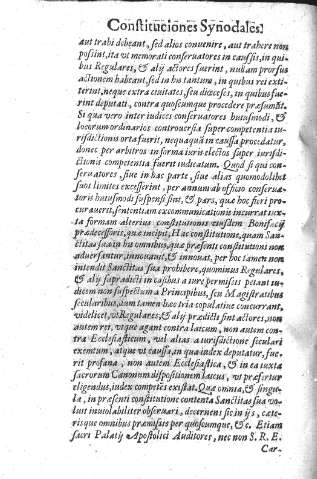 Constitutiones Synodales.
aut trahi debeant, sed alios conuenire, aut trahere non
possint, ita vt memorati conseruatores in caussis, in qui-
bus Regulares, & alij actores fuerint, nullam prorsus
actionem habeant, sed in his tantum, in quibus rei exti-
terint, neque extra ciuitates, seu diœceses, in quibus fue-
rint deputati, contra quoscumque procedere præsumāt.
Si qua vero inter iudices conseruatores huiusmodi, &
locorum ordinarios controuersia super competentia iu-
risdictionis orta fuerit, nequaquā in caussa procedatur,
donec per arbitros in forma iuris electos super iurisdi-
ctionis competentia fuerit iudicatum. Quod si qui con-
seruatores, siue in hac parte, siue alias quomodolibet
suos limites excesserint, per annum ab officio conserua-
toris huiusmodi suspensi sint, & pars, quæ hoc fieri pro-
curauerit, sententiam excommunicationis incurrat iux-
ta formam alterius constitutionis eiusdem Bonifacij
prædecessoris, quæ incipit, Hac constitutione, quam San-
ctitas sua in his omnibus, quæ præsenti constitutioni non
aduersantur, innouauit, & innouat, per hoc tamen non
intendit Sanctitas sua prohibere, quominus Regulares,
& alij supradicti in casibus a iure permissis petant iu-
dicem non suspectum a Principibus, seu Magistratibus
secularibus, dum tamen hæc tria copulatiue concurrant,
videlicet, vt Regulares, & alij prædicti sint actores, non
autem rei, vtque agant contra laicum, non autem con-
tra Ecclesiasticum, vel alias a iurisdictione seculari
exemtum, atque vt caussa, in qua iudex deputatur, fue-
rit profana, non autem Ecclesiastica, & in ea iuxta
sacrorum Canonum dispositionem laicus, vt præfertur
eligendus, iudex competēs existat. Quæ omnia, & singu-
la, in præsenti constitutione contenta Sanctitas sua vo-
luit inuiolabiliter obseruari, decernens sic in ijs, cæte-
risque omnibus præmissis per quoscumque, &c. Etiam
sacri Palatij Apostolici Auditores, nec non S. R. E.
Car-